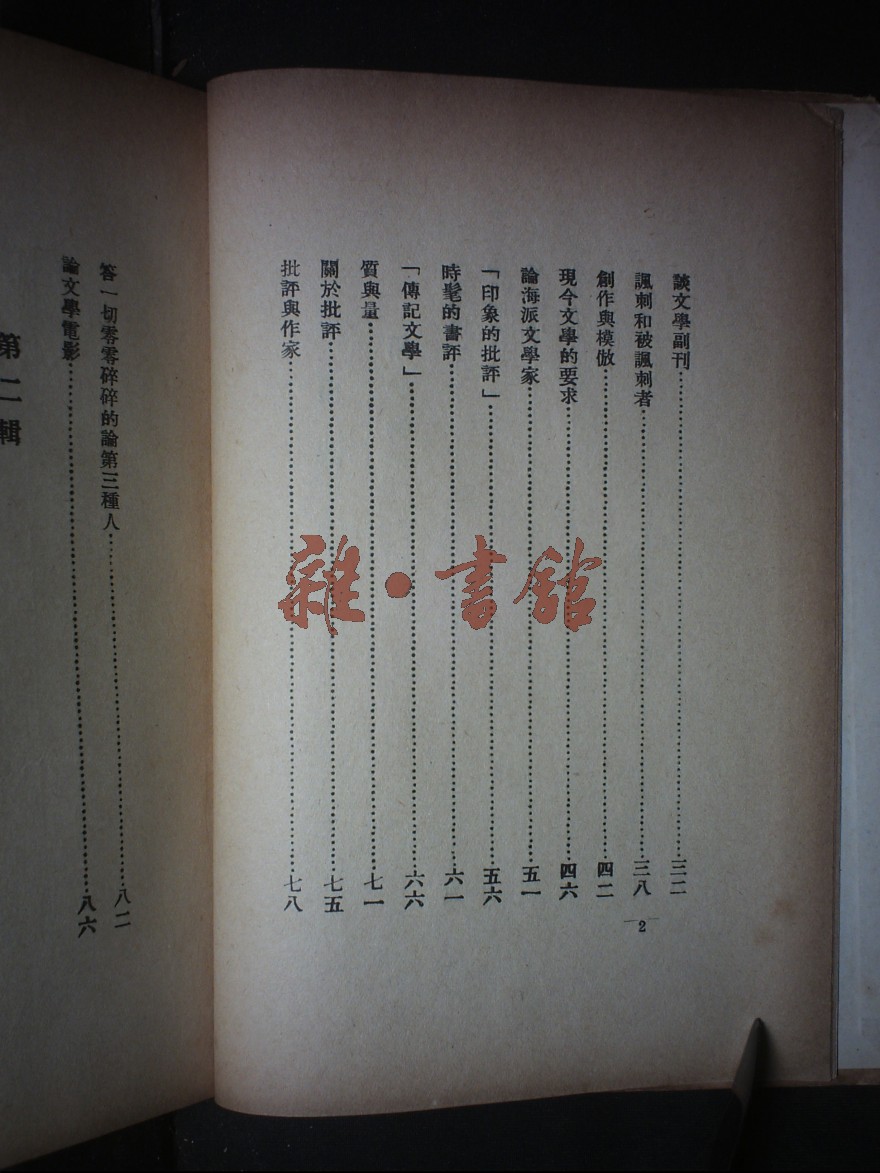 談文學副刊⋯⋯三二
諷刺和被諷刺者⋯⋯三八
創作與模倣⋯⋯四二
現今文學的要求⋯⋯四六
論海派文學家⋯⋯五一
「印象的批評」⋯⋯五六
時髦的書評⋯⋯六一
「傳記文學」⋯⋯六六
質與量⋯⋯七一
關於批評⋯⋯七五
批評與作家⋯⋯七八
2
答一切零零碎碎的論第三種人⋯⋯八二
論文學電影⋯⋯八六
第二輯
雜·書館